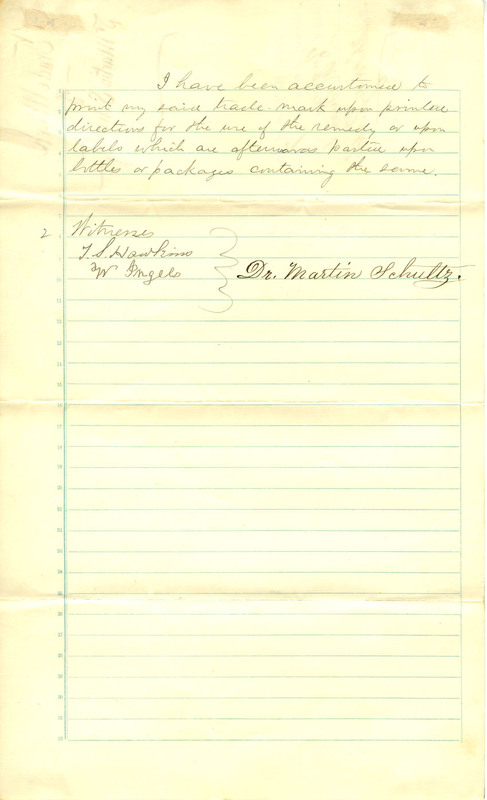 I have been accustomed to
print my said trade-mark upon printed
directions for the use of the remedy or upon
labels which are afterwards pasted upon
bottles or packages containing the same.
2 Witnesses
T. S. Hawkins
W Ingels
Dr. Martin Schultz.